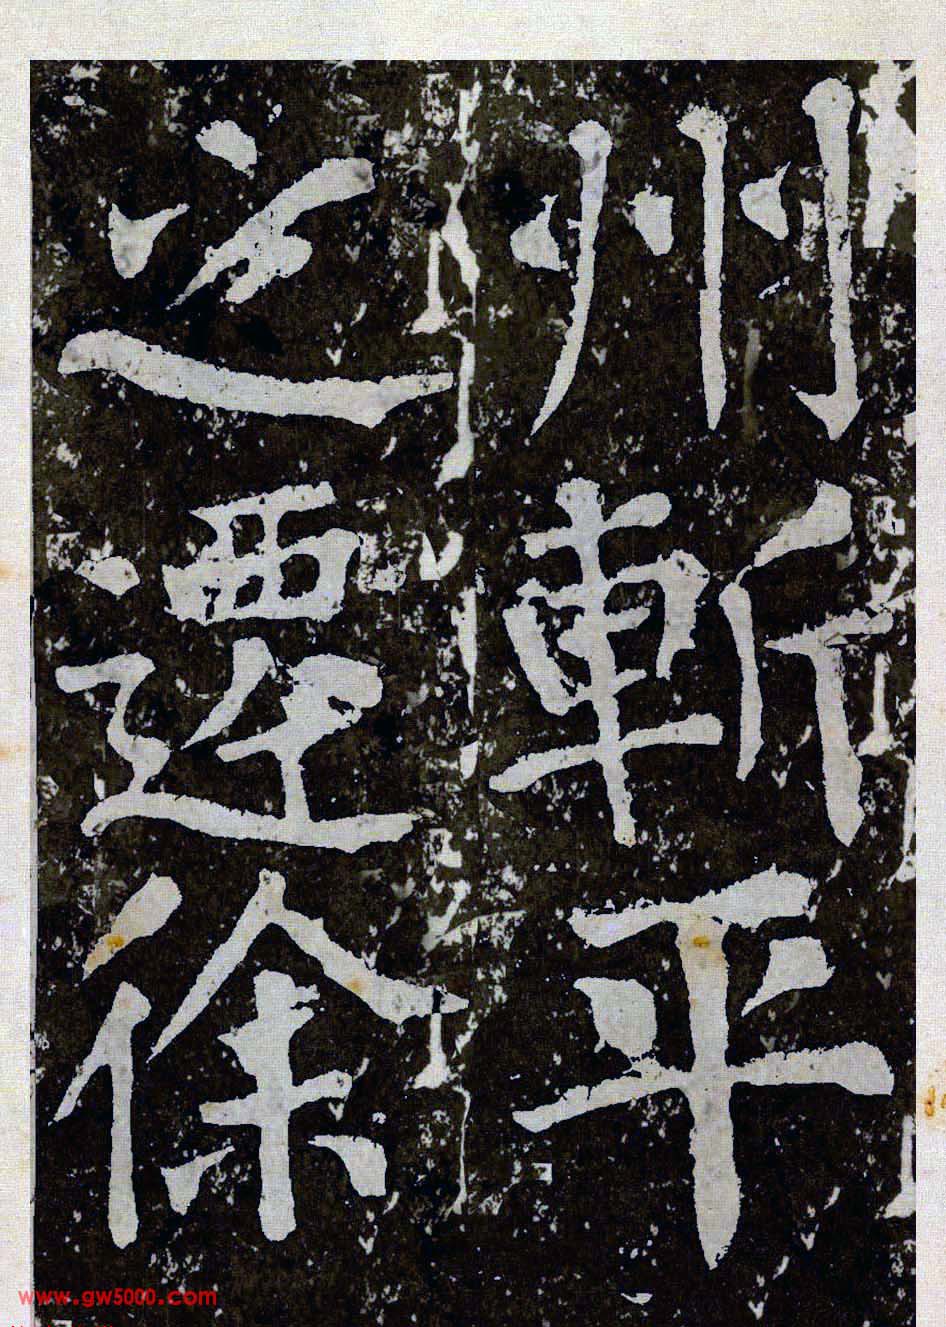 州斬平
之遷徐
www.gw5000.com